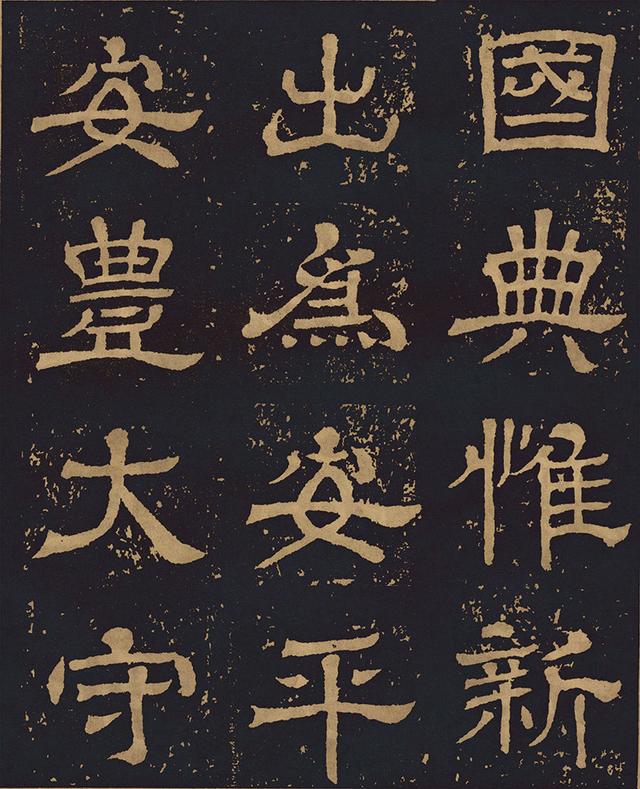 國典惟新
出爲安平
安豊太守